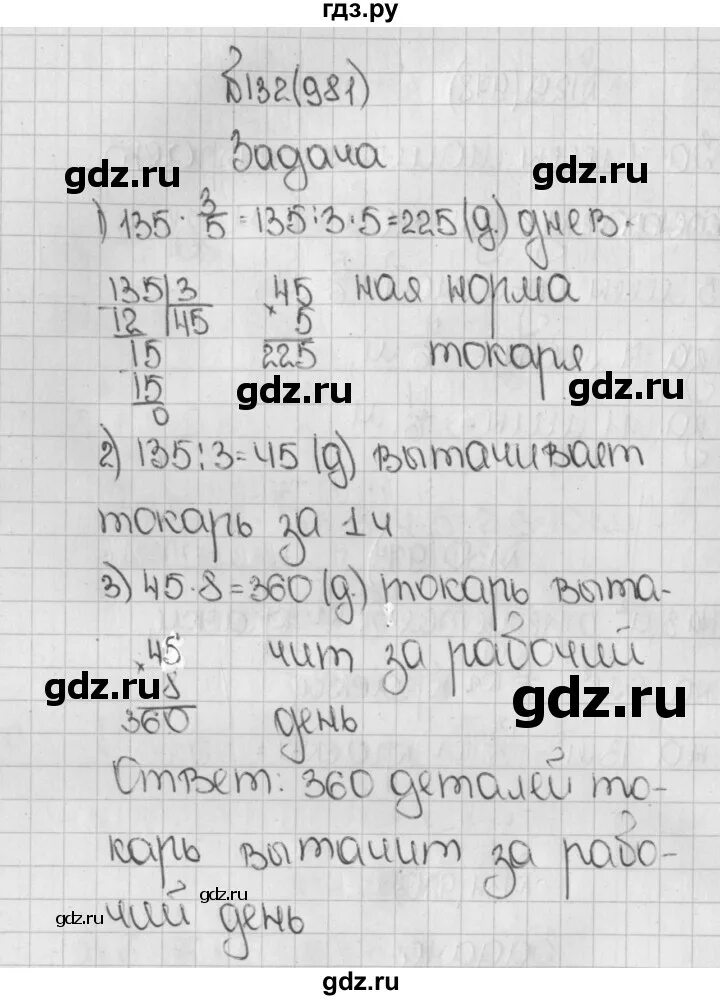 гдз.ру
№132(981)
Задача
gdz.ru gdz.ru
1) 135 · 3/5 = 135 : 3 · 5 = 225 (д.) днев-
135 | 3 45 ная норма
12 | 45 × 5
15 225 токаря
15
0
gdz.ru gdz.ru
2) 135 : 3 = 45 (д) вытачивает
токарь за 1 ч
3) 45 · 8 = 360 (д.) токарь выта-
45 чит за рабочий
× 8
gdz.ru gdz.ru
360 день
Ответ: 360 деталей то-
карь вытачит за рабо-
чий день
gdz.ru gdz.ru
gdz.ru